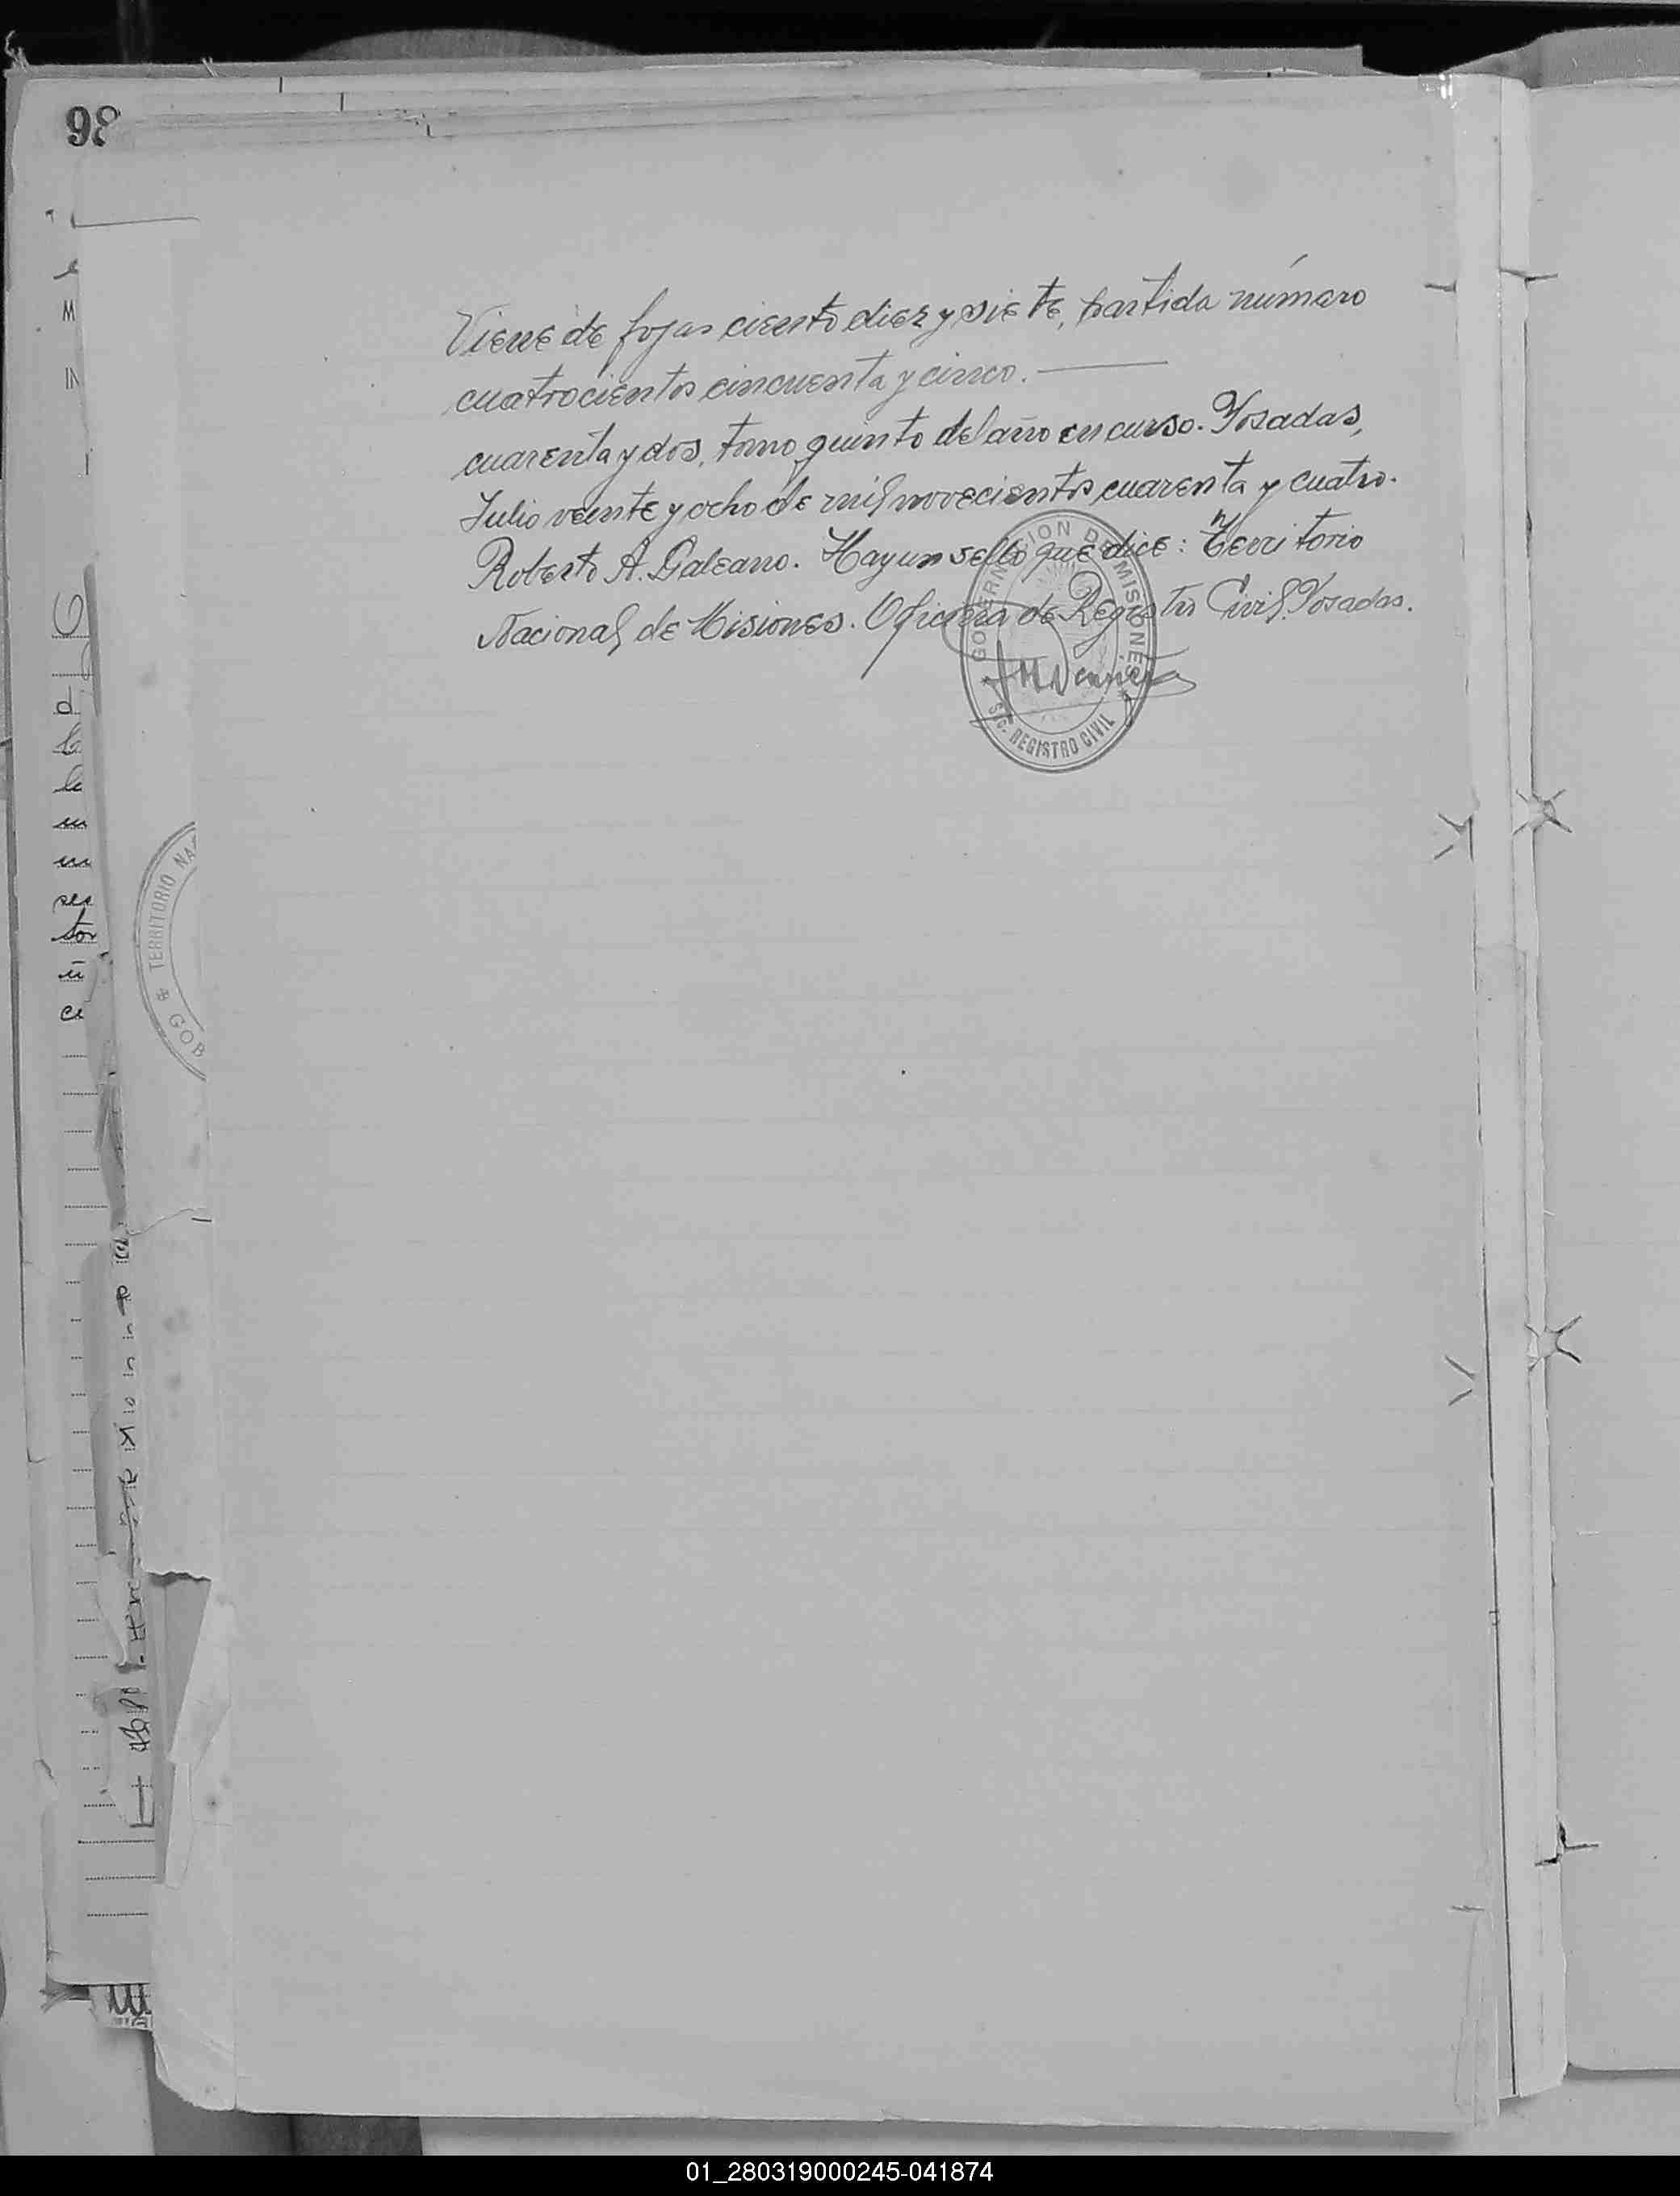 98
M
IN
Viene de fojas ciento diez y siete, partida número
cuatrocientos cincuenta y cinco.
cuarenta y dos, tomo quinto del año en curso. Posadas,
Julio veinte y ocho de mil novecientos cuarenta y cuatro.
Roberto A. Galeano. Hay un sello que dice: Territorio
Nacional de Misiones. Oficina de Registro Civil. Posadas.
GOBERNACION DE MISIONES
REGISTRO CIVIL
TERRITORIO NA
GOB
01_280319000245-041874